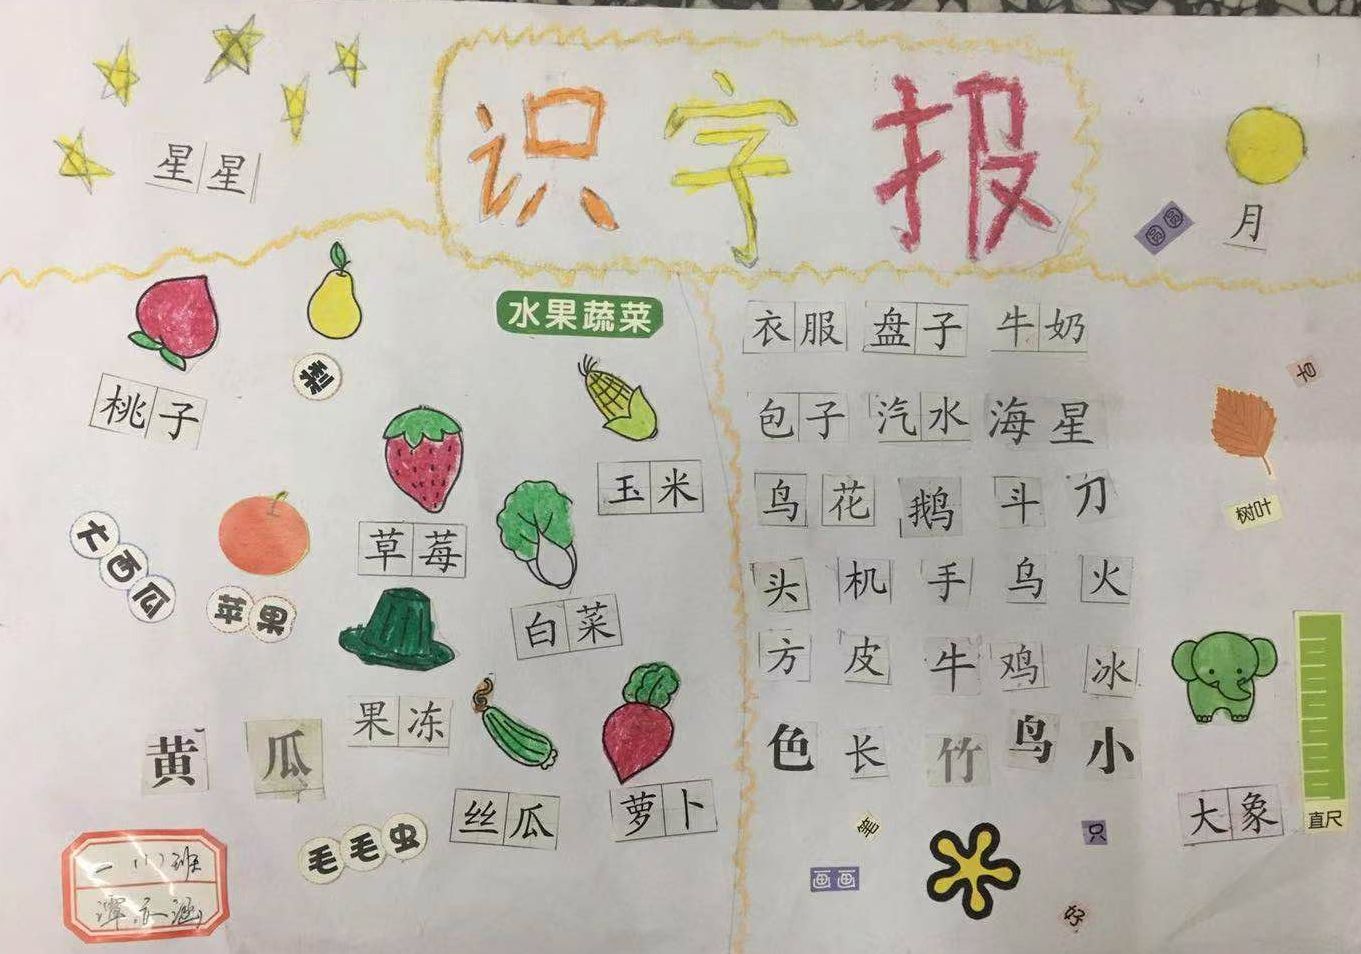 识字报
星星
月
水果蔬菜
桃子
梨
草莓
玉米
大西瓜
苹果
白菜
果冻
黄瓜
丝瓜
萝卜
毛毛虫
衣服 盘子 牛奶
包子 汽水 海星
鸟 花 鹅 斗 刀
头 机 手 乌 火
方 皮 牛 鸡 冰
色 长 竹 鸟 小
古
树叶
大象
直尺
笔
只
画画
好